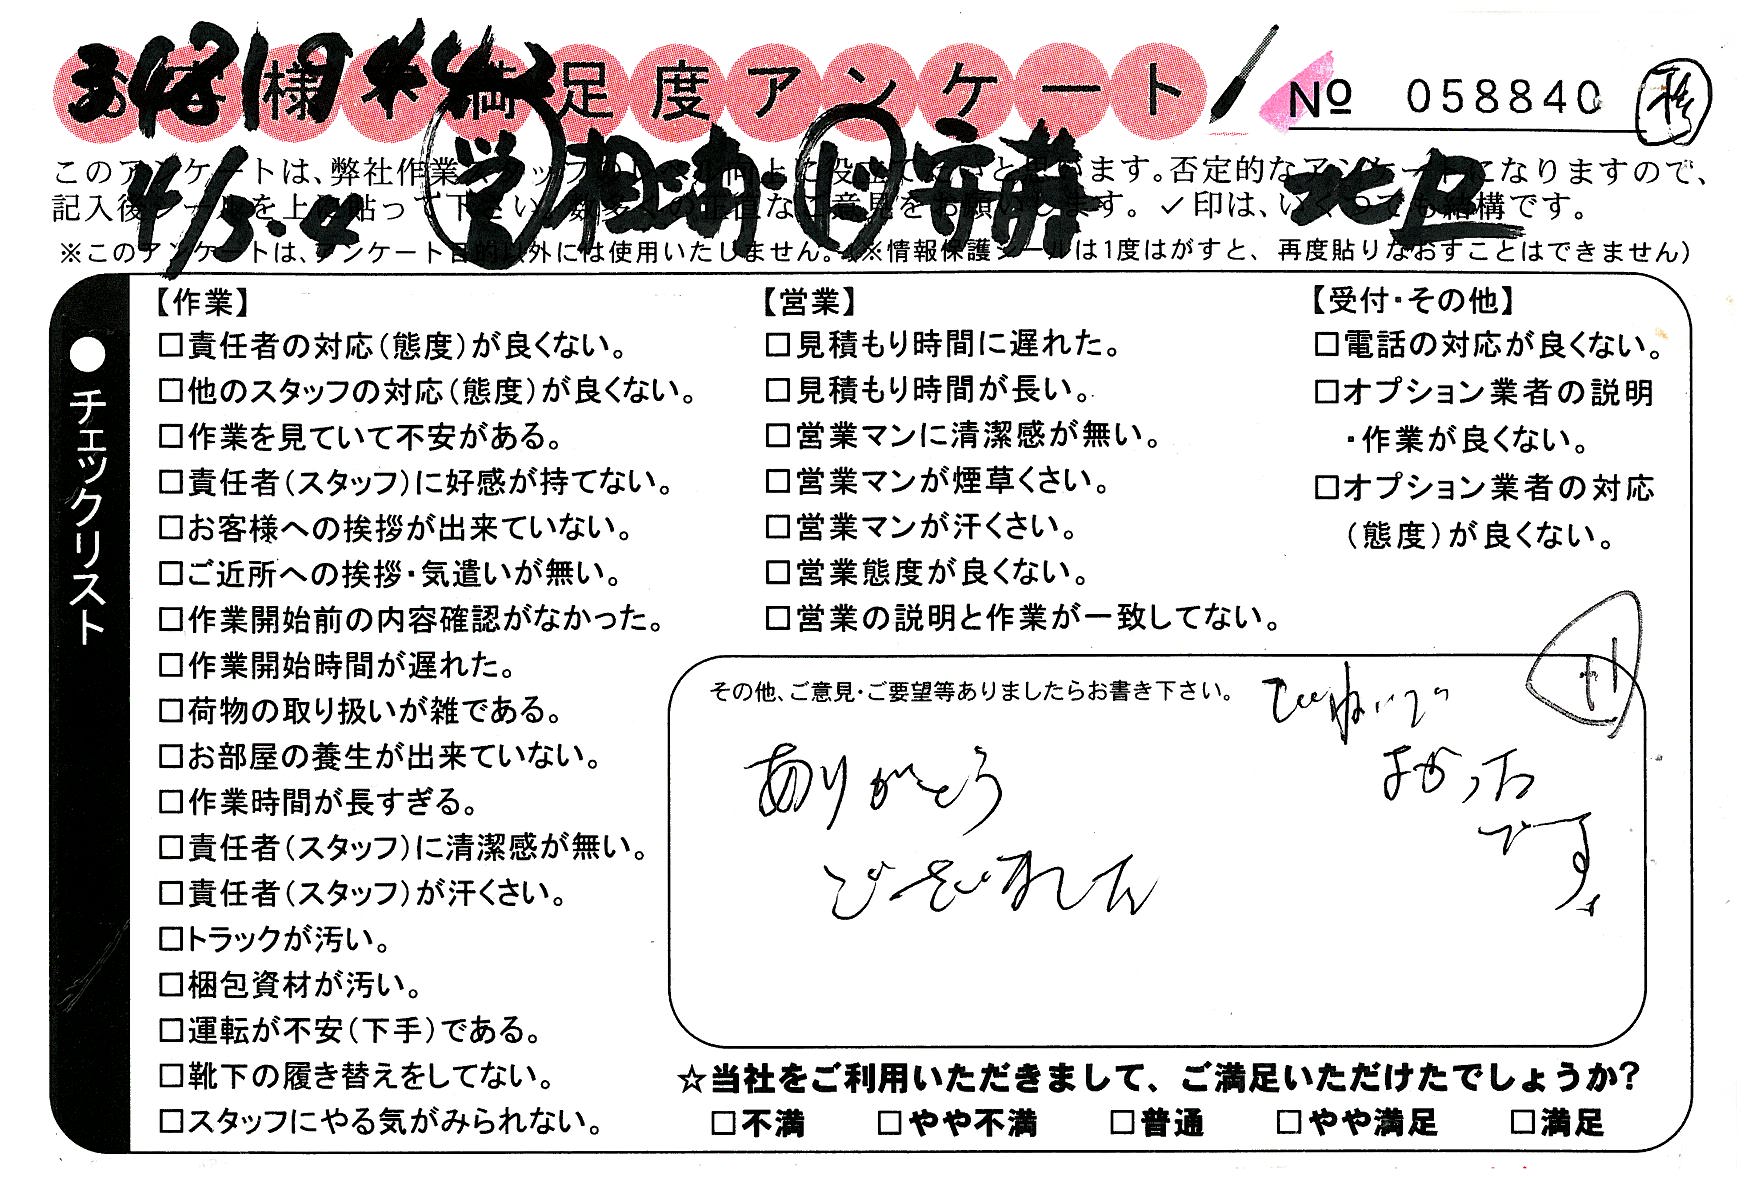 お客様不満足度アンケート
No 058840
このアンケートは、弊社作業スタッフのレベル向上に役立てたいと思います。否定的なアンケートになりますので、
記入後シールを上に貼って下さい。数多くの正直なご意見をお願いします。✓印は、いくつでも結構です。
※このアンケートは、アンケート目的以外には使用いたしません。(※情報保護シールは1度はがすと、再度貼りなおすことはできません)
4/3.4 営 北区
●チェックリスト
【作業】
□責任者の対応(態度)が良くない。
□他のスタッフの対応(態度)が良くない。
□作業を見ていて不安がある。
□責任者(スタッフ)に好感が持てない。
□お客様への挨拶が出来ていない。
□ご近所への挨拶・気遣いが無い。
□作業開始前の内容確認がなかった。
□作業開始時間が遅れた。
□荷物の取り扱いが雑である。
□お部屋の養生が出来ていない。
□作業時間が長すぎる。
□責任者(スタッフ)に清潔感が無い。
□責任者(スタッフ)が汗くさい。
□トラックが汚い。
□梱包資材が汚い。
□運転が不安(下手)である。
□靴下の履き替えをしてない。
□スタッフにやる気がみられない。
【営業】
□見積もり時間に遅れた。
□見積もり時間が長い。
□営業マンに清潔感が無い。
□営業マンが煙草くさい。
□営業マンが汗くさい。
□営業態度が良くない。
□営業の説明と作業が一致してない。
【受付・その他】
□電話の対応が良くない。
□オプション業者の説明
・作業が良くない。
□オプション業者の対応
(態度)が良くない。
その他、ご意見・ご要望等ありましたらお書き下さい。
ありがとう
ございました
ていねいで
よかった
です。
☆当社をご利用いただきまして、ご満足いただけたでしょうか?
□不満 □やや不満 □普通 □やや満足 □満足